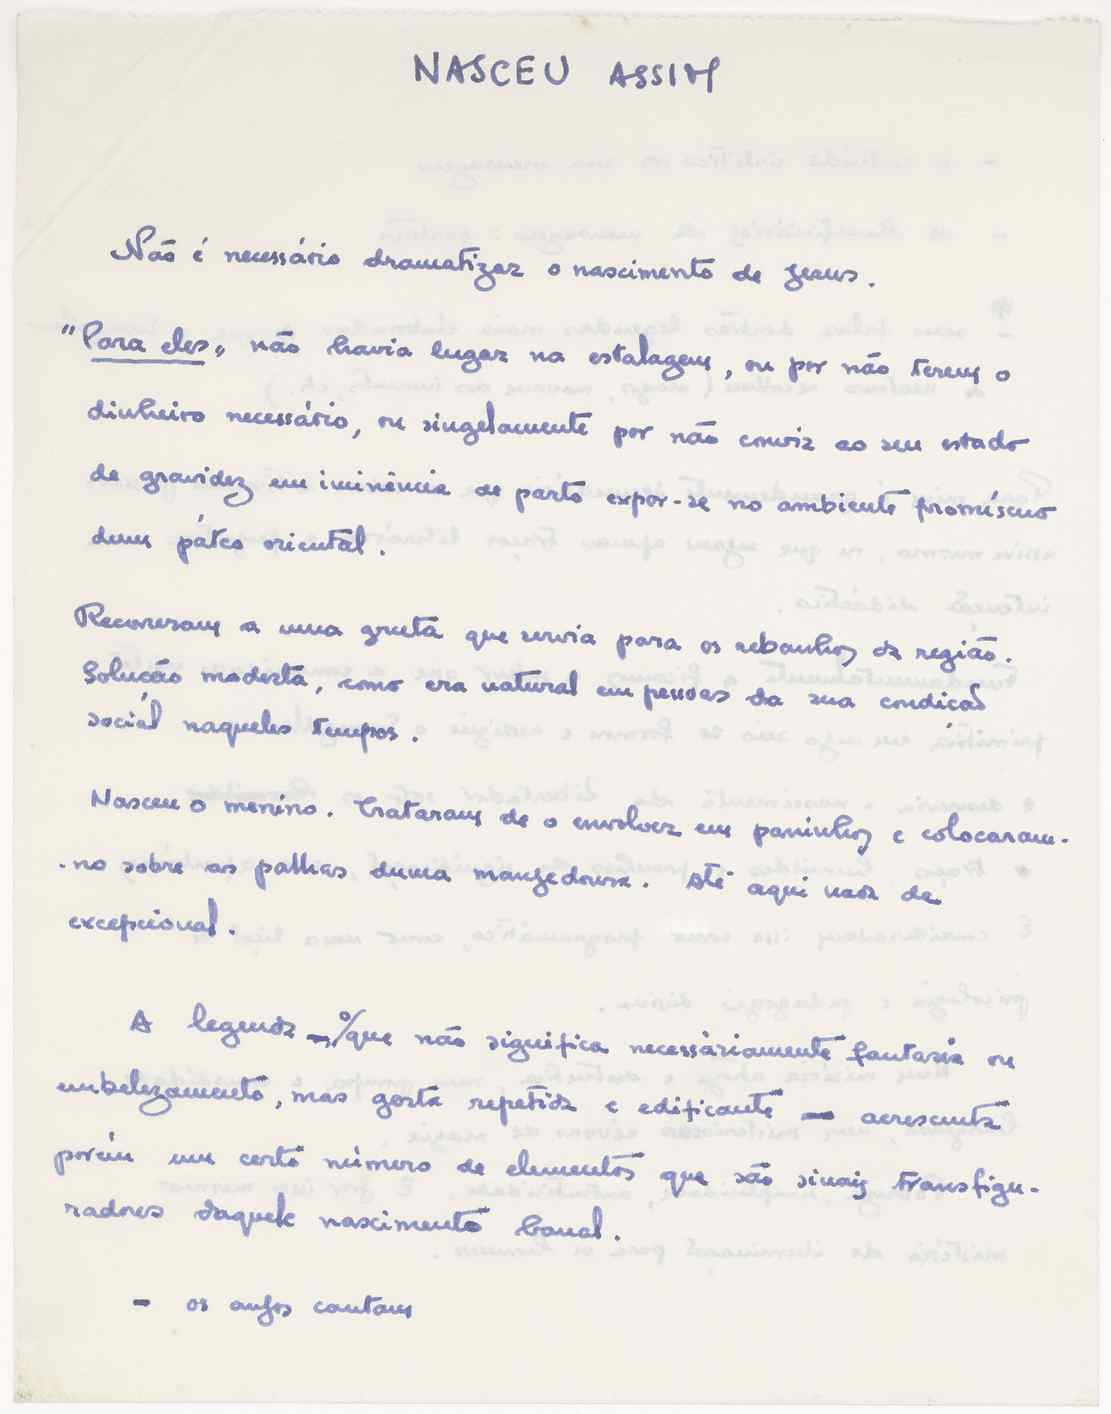 NASCEU ASSIM
Não é necessário dramatizar o nascimento de Jesus.
"Para eles" não havia lugar na estalagem, ou por não terem o
dinheiro necessário, ou singelamente por não convir ao seu estado
de gravidez em iminência de parto expor-se no ambiente promíscuo
dum páteo oriental.
Recorreram a uma gruta que servia para os rebanhos da região.
Solução modesta, como era natural em pessoas da sua condição
social naqueles tempos.
Nasceu o menino. Trataram de o envolver em paninhos e colocaram-
-no sobre as palhas duma mangedoura. Até aqui nada de
excepcional.
A legenda — que não significa necessàriamente fantasia ou
embelezamento, mas gesta repetida e edificante — acrescenta
porém um certo número de elementos que são sinais transfigu-
radores daquele nascimento banal.
- os anjos cantam